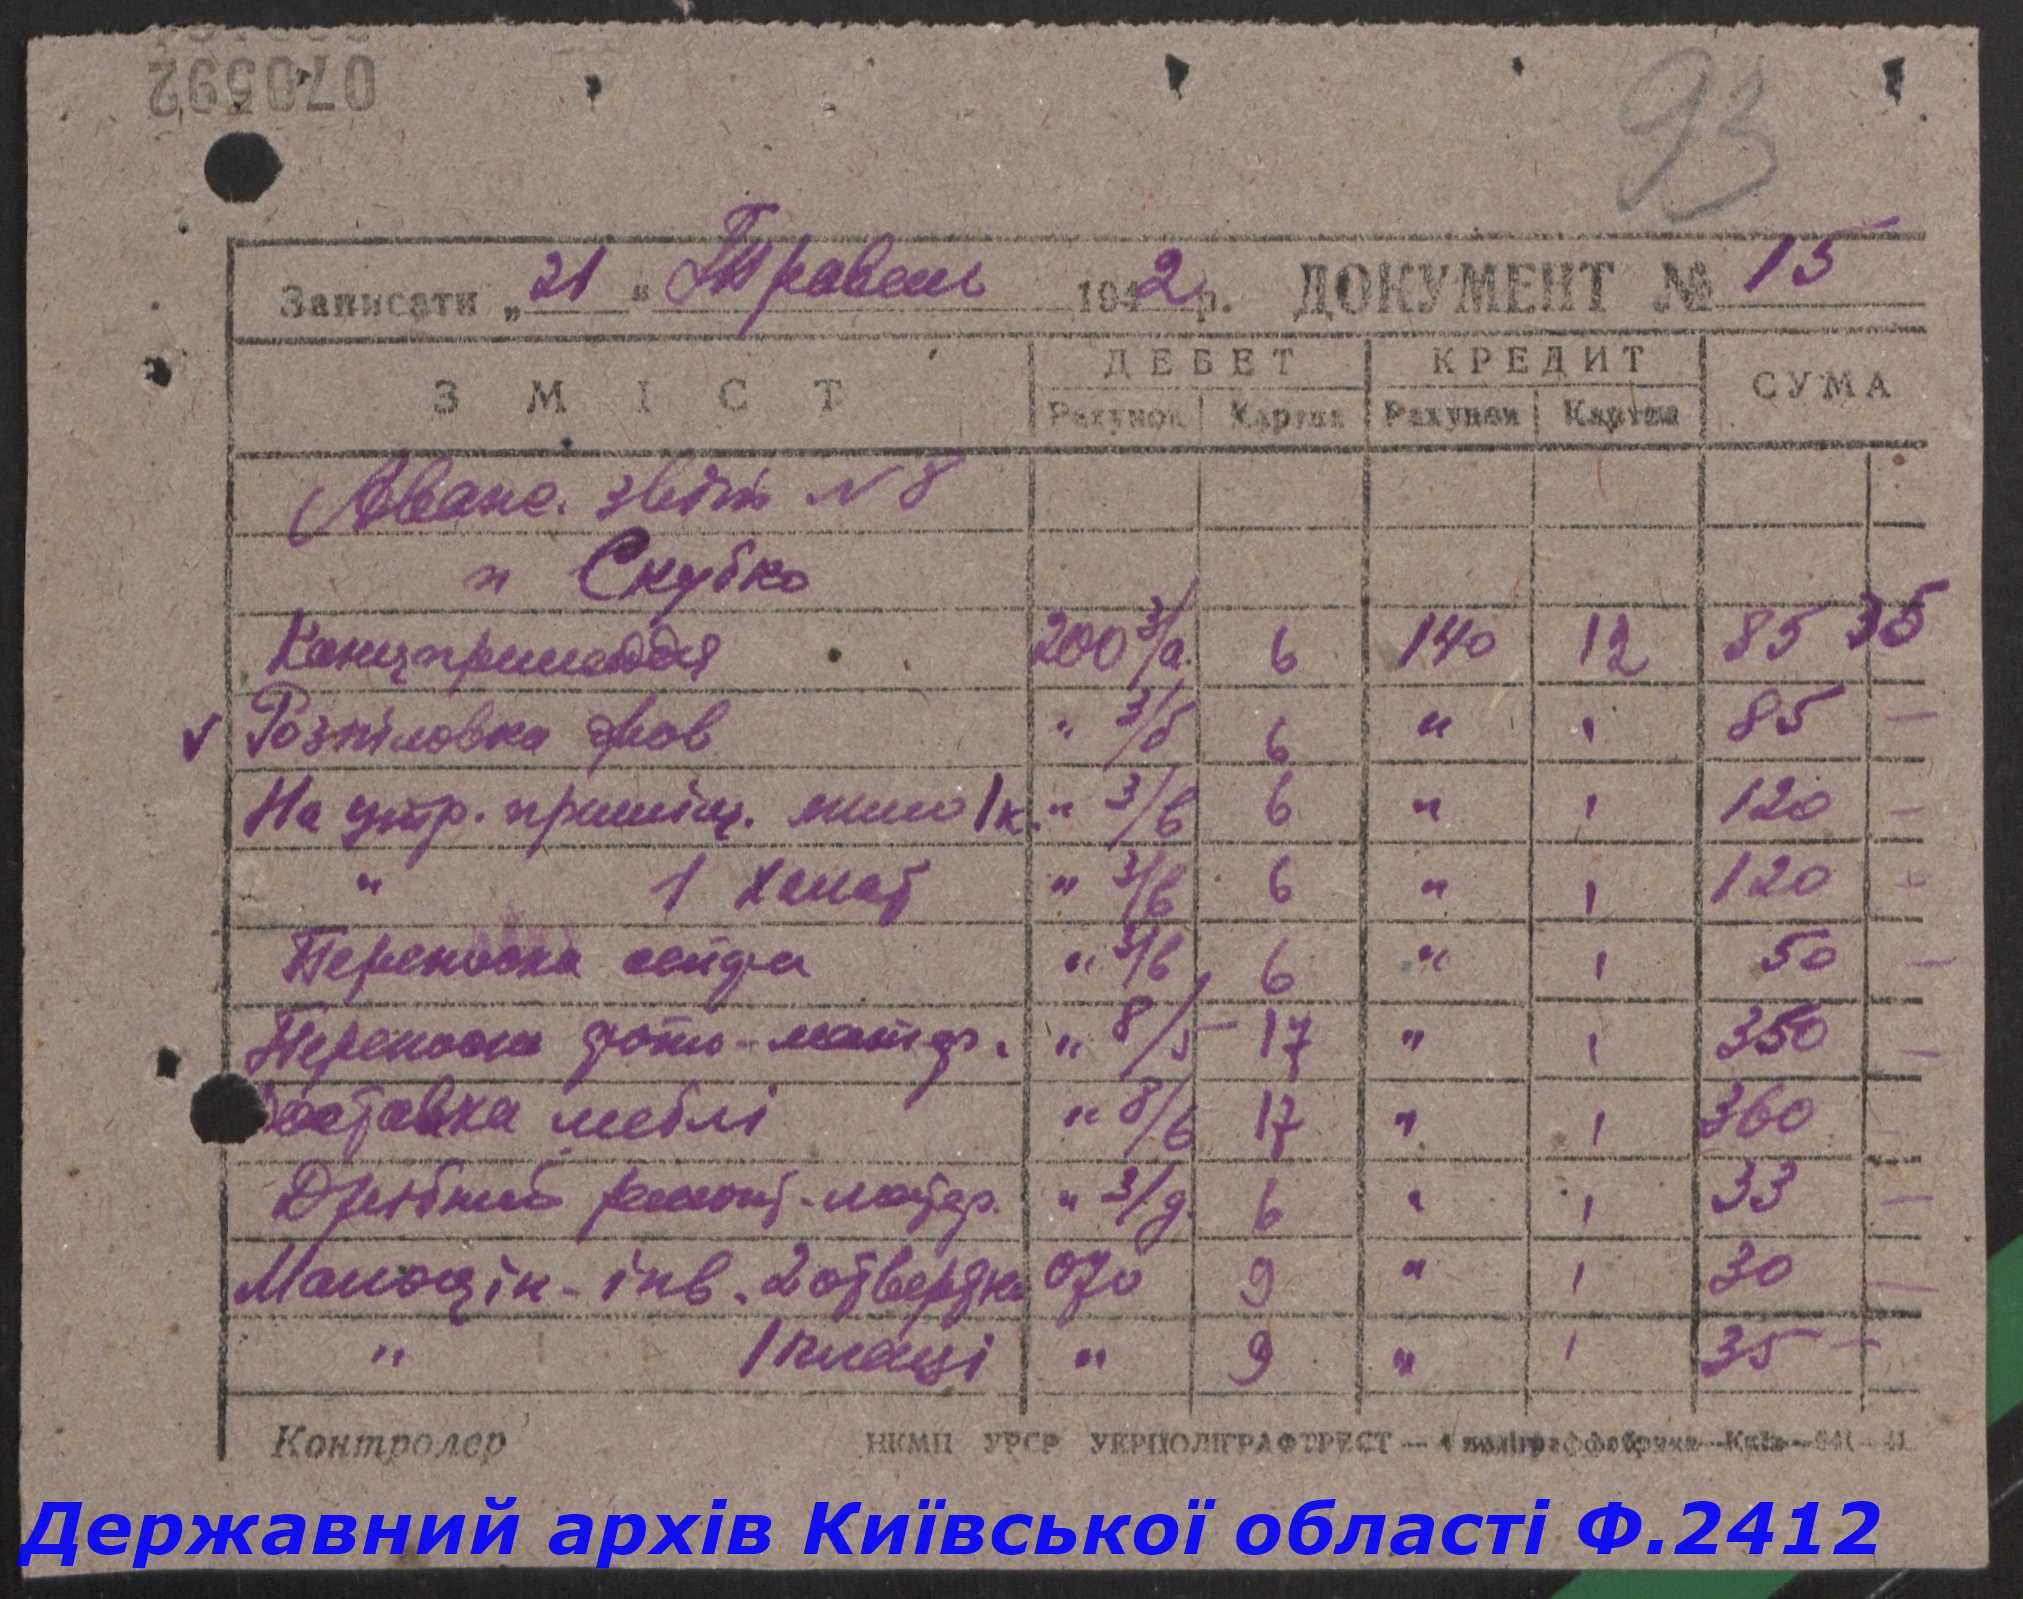 070592
93
Записати „ 31 “ Травень 1942 р. ДОКУМЕНТ № 15
ЗМІСТ ДЕБЕТ КРЕДИТ СУМА
Рахунок Картка Рахунок Картка
Аванс. звіт N 8
п Скубко
Канцприладдя 200 3/а. 6 140 12 85 35
✓ Розпіловка дров " 3/б 6 " " 85 —
На утр. приміщ. мило 1 к. " 3/в 6 " " 120 —
" 1 халат " 3/в 6 " " 120 —
Переноска сейфа " 3/в 6 " " 50 —
Переноска фото-матер. " 8/5 17 " " 350 —
Доставка меблі " 8/6 17 " " 360 —
Дрібний ремонт-матер. " 3/д. 6 " " 33 —
Малоцін-інв. 2 отвертки 070 9 " " 30 —
" 1 " 9 " " 35 —
Контролер НКМП УРСР УКРПОЛІГРАФТРЕСТ — 1 поліграффабрика — Київ — 941
Державний архів Київської області Ф.2412